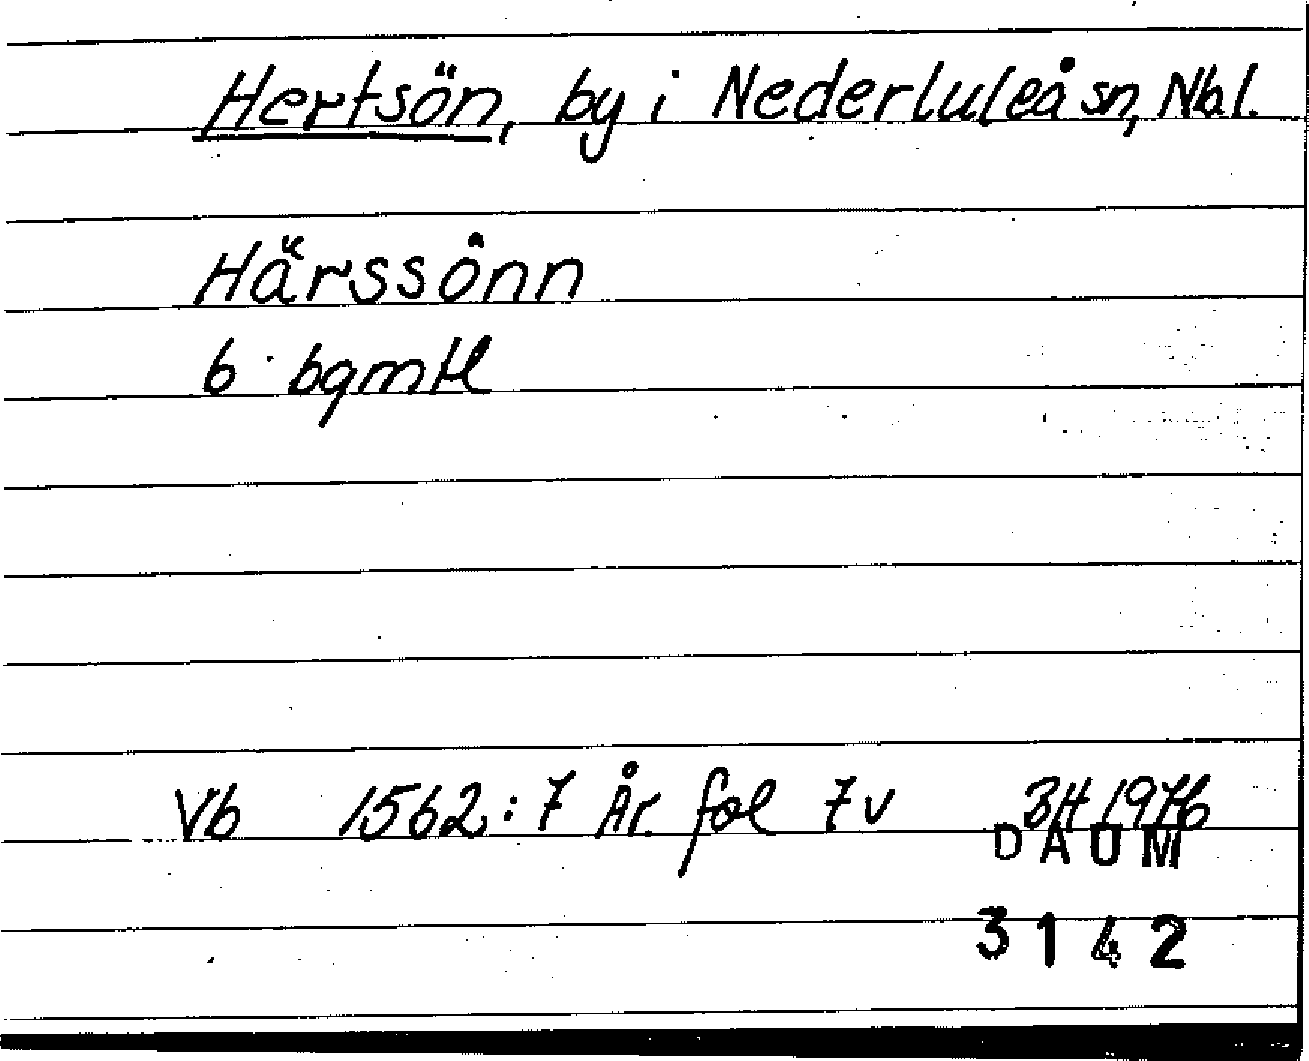 Hertsön, by i Nederluleå sn, Nbl.
Hårssönn
6 bgmtl
Vb 1562:7 År. fol 7v BH 1976
DAUM
3142